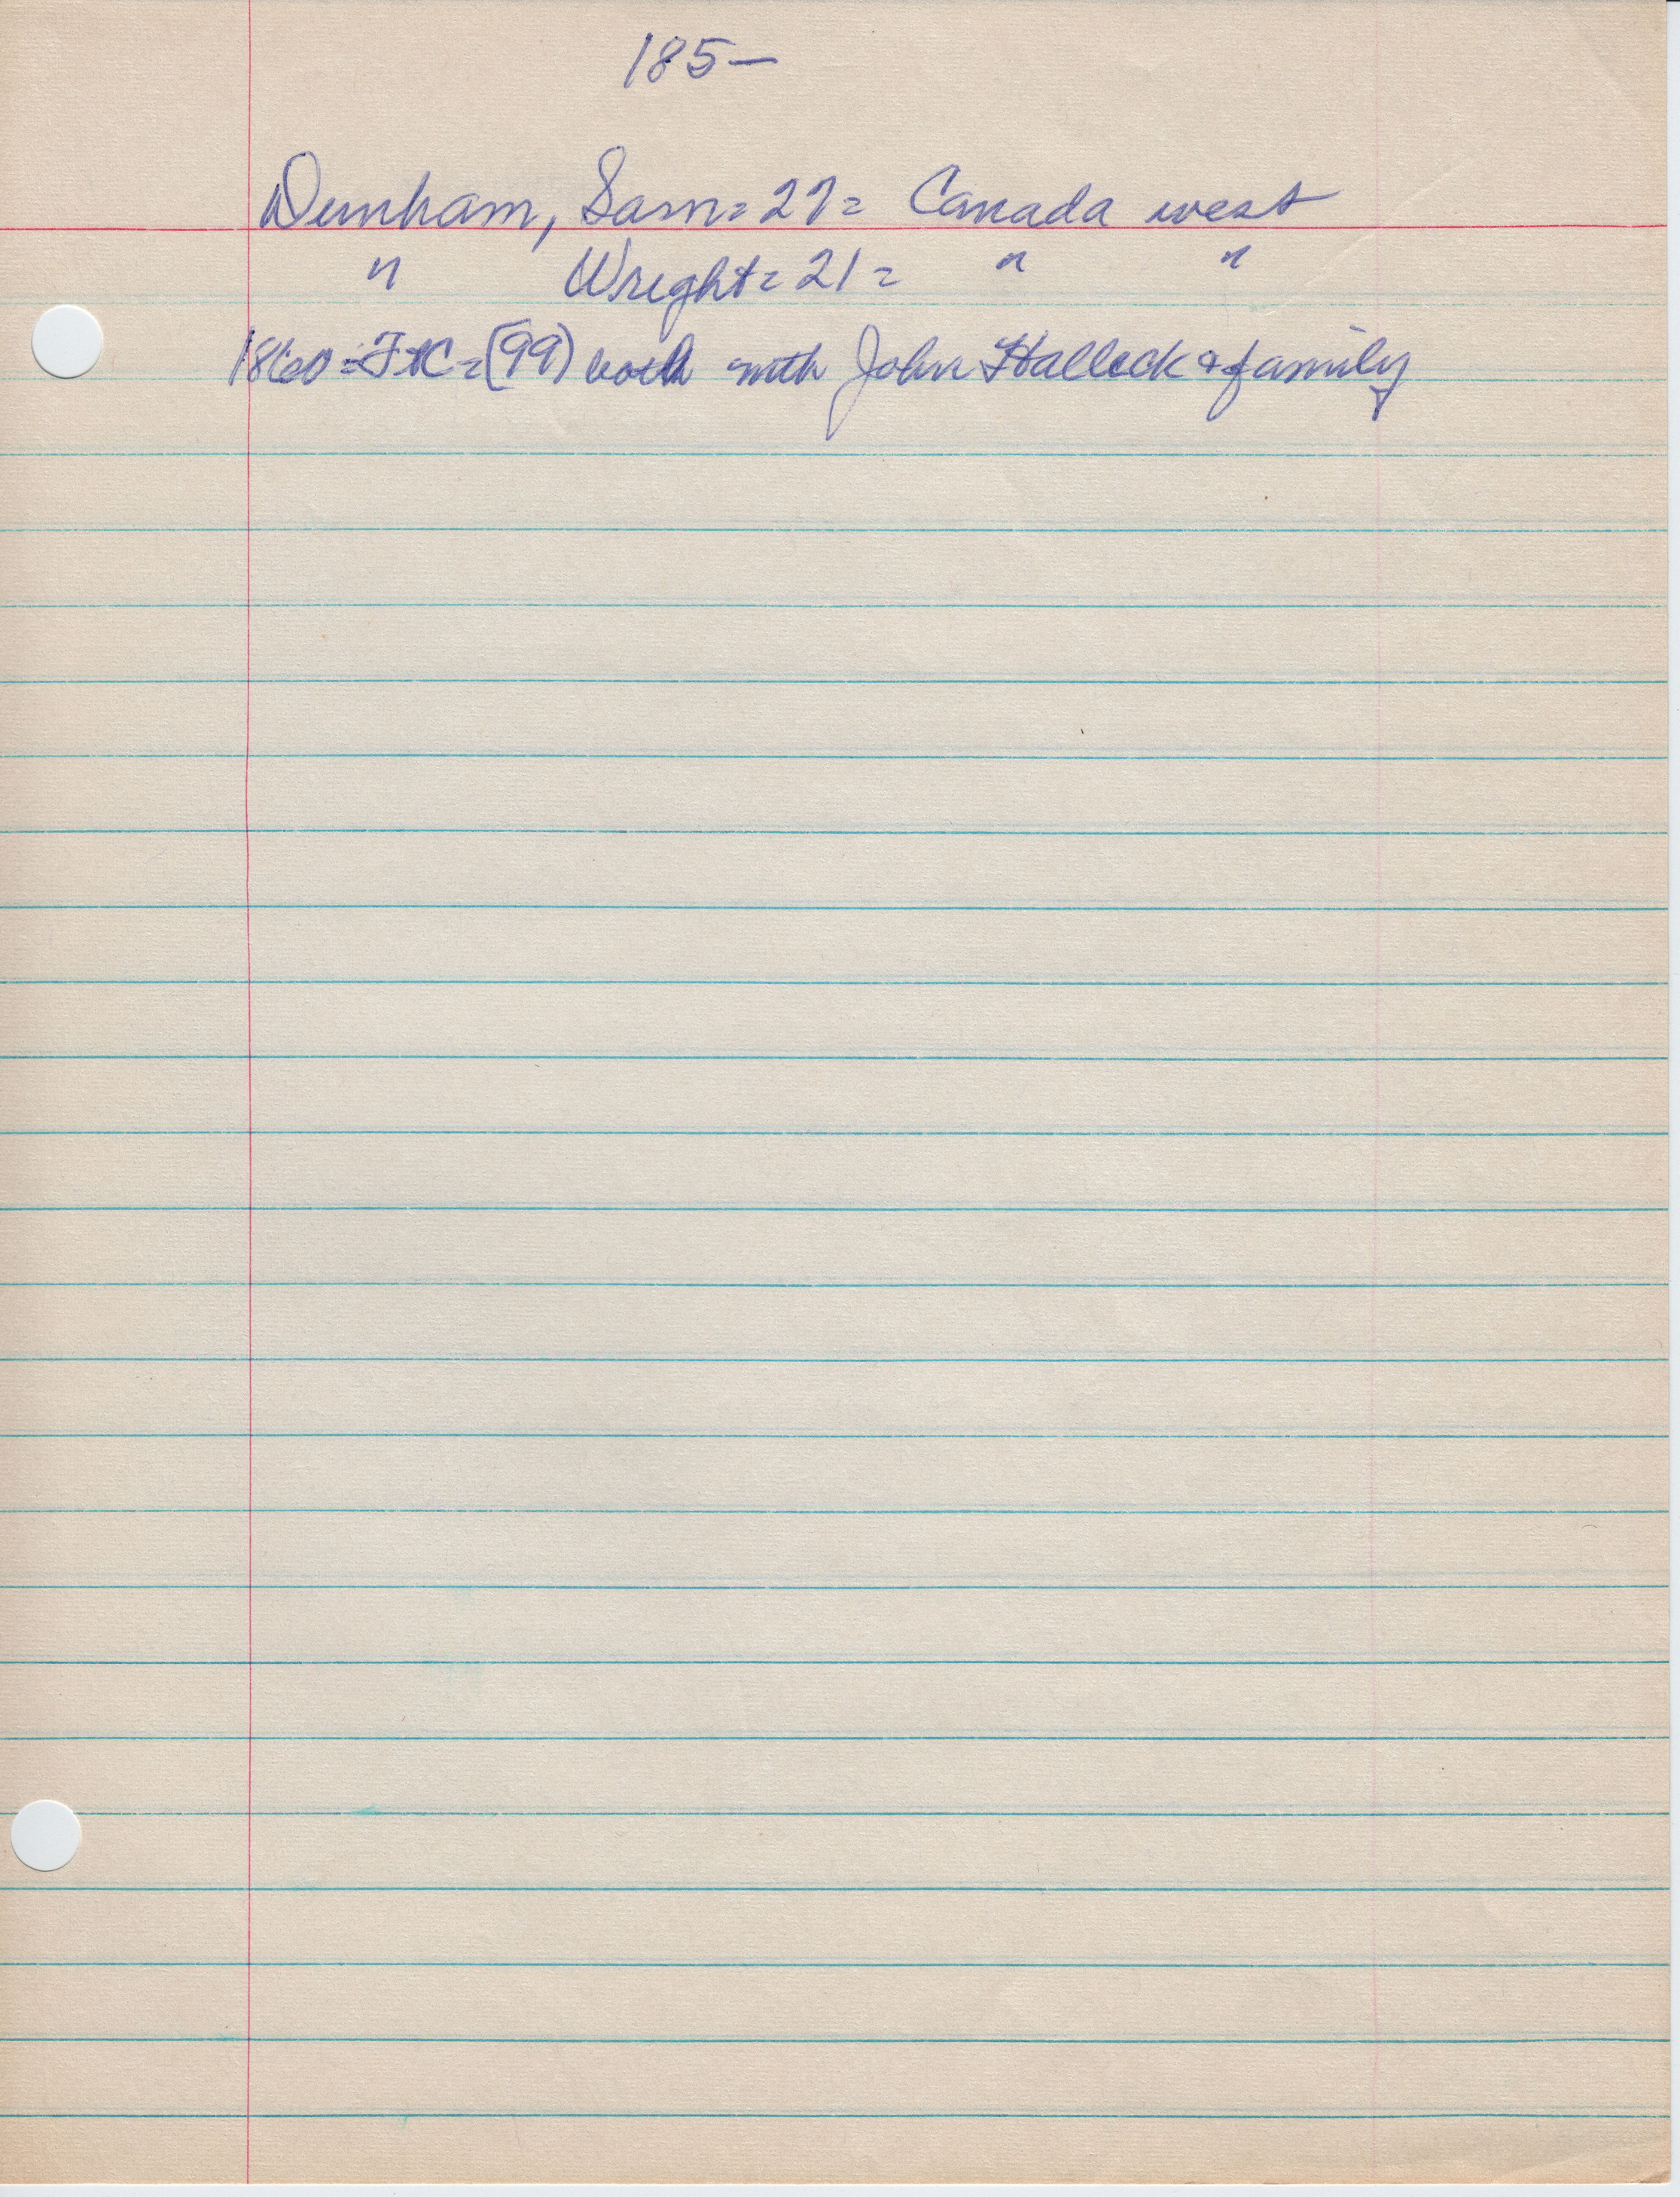 185—
Dunham, Sam = 27 = Canada west
" Wright = 21 = " "
1860 = F.C = (99) both with John Halleck & family